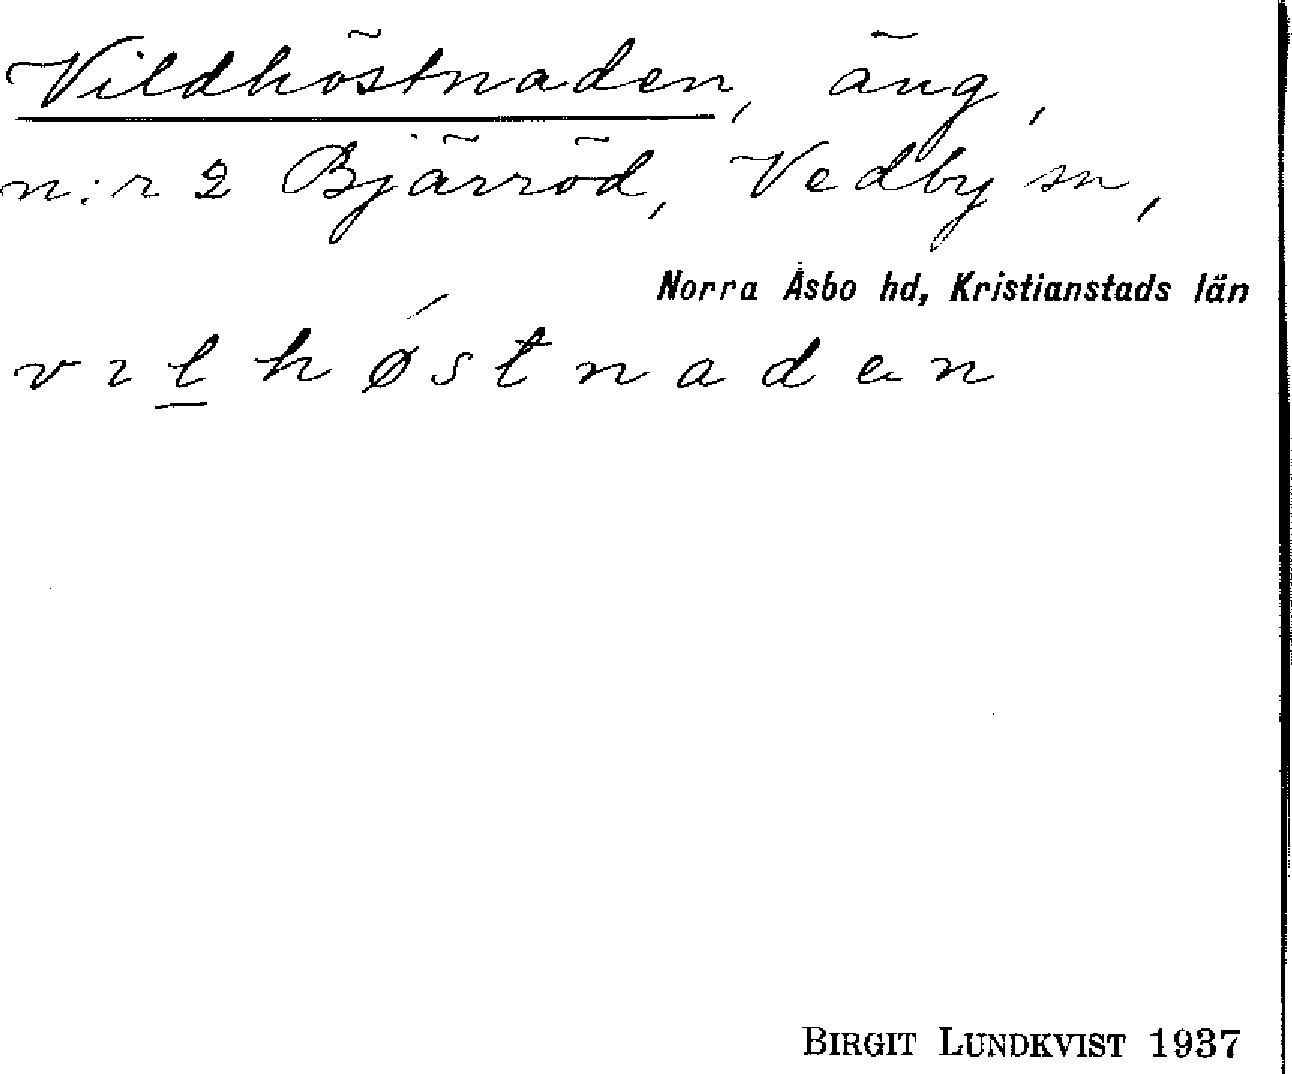 Vildhöstnaden, äng,
n:r 2 Bjärröd, Vedby sn,
Norra Åsbo hd, Kristianstads län
vılhǿstnaden
BIRGIT LUNDKVIST 1937